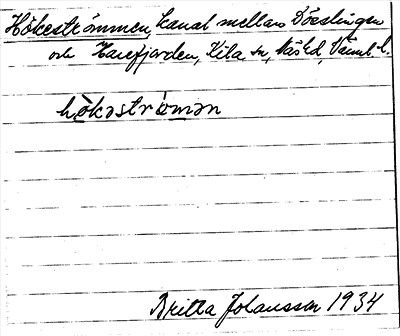 Hökeströmmen, kanal mellan Börslingen
och Harefjorden, Kila sn, Näs hd, Värml. l.
hökəströmən
Britta Johansson 1934